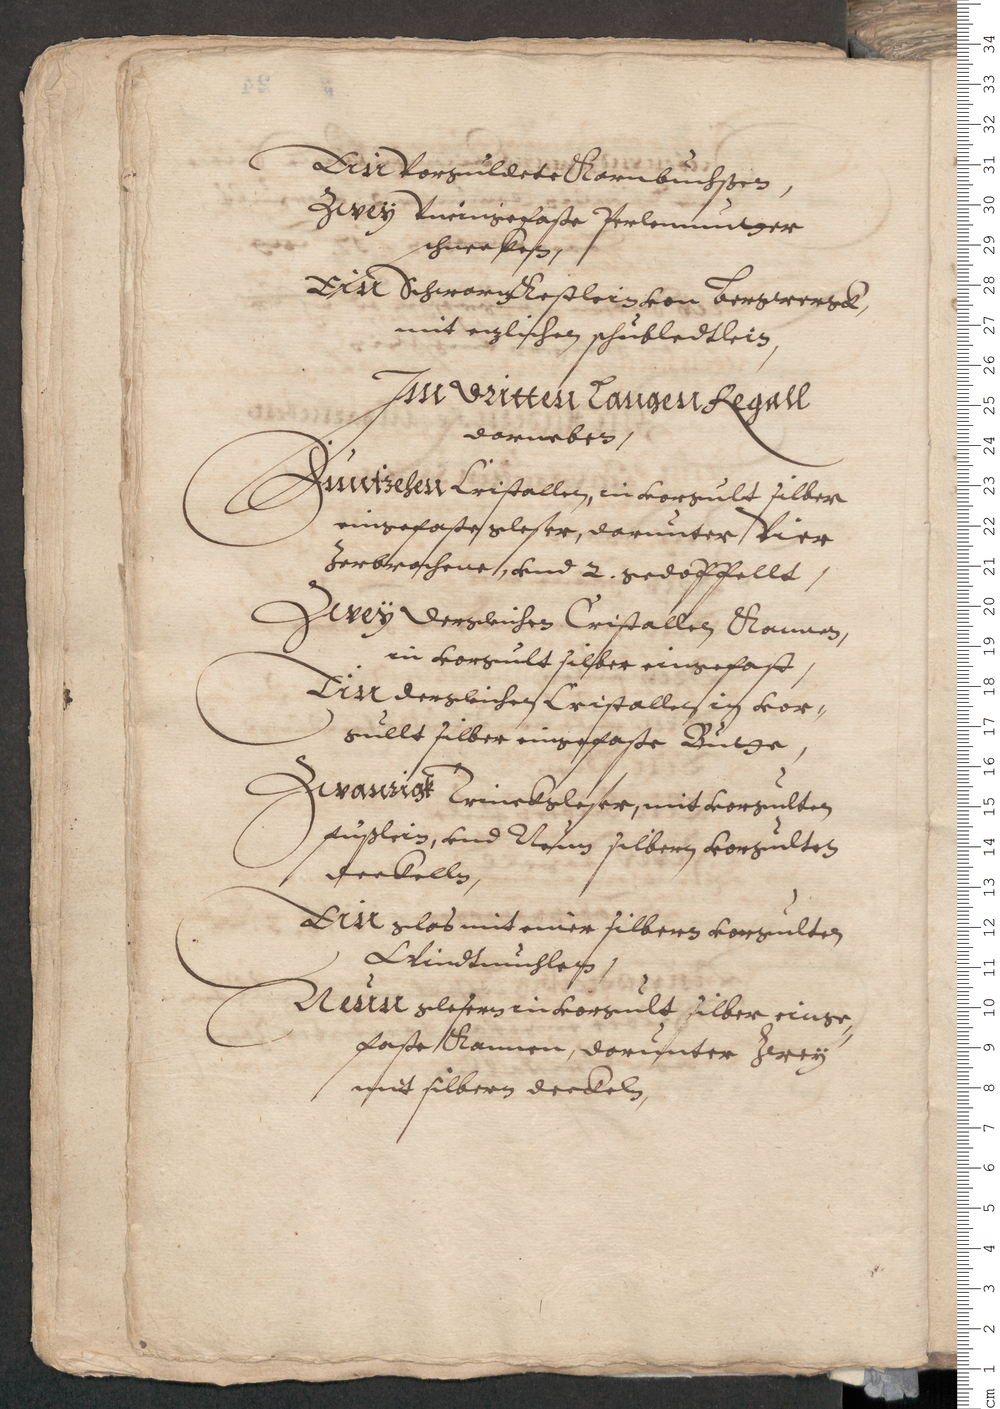 Ein Vorguldete Kornbuchßen,
Zwey Vneingefaste Perlenmutter
schnecken,
Ein Schwartz Kestlein von Bergwergk,
mit etzlichen schubledtlein,
Im dritten Langen Regall
darneben,
Funftzehen Cristallen, in vorgult silber
eingefaste gleser, darunter Vier
Zerbrochene, vnd 2. gedoffellt,
Zwey dergleichen Cristallen Kannen,
in vorgult silber eingefast,
Ein dergleichen Cristallen in vor=
gullt silber eingefaste Butte,
Zwanzigk Trinckgleser, mit vorgulten
fußlein, vnd Neun silbern vorgulten
deckelln,
Ein glas mit einer silbern vorgulten
Windtmuhlen,
Neun glesern in vorgult silber einge=
faste Kannen, darunter Zwey
mit silbern deckeln,